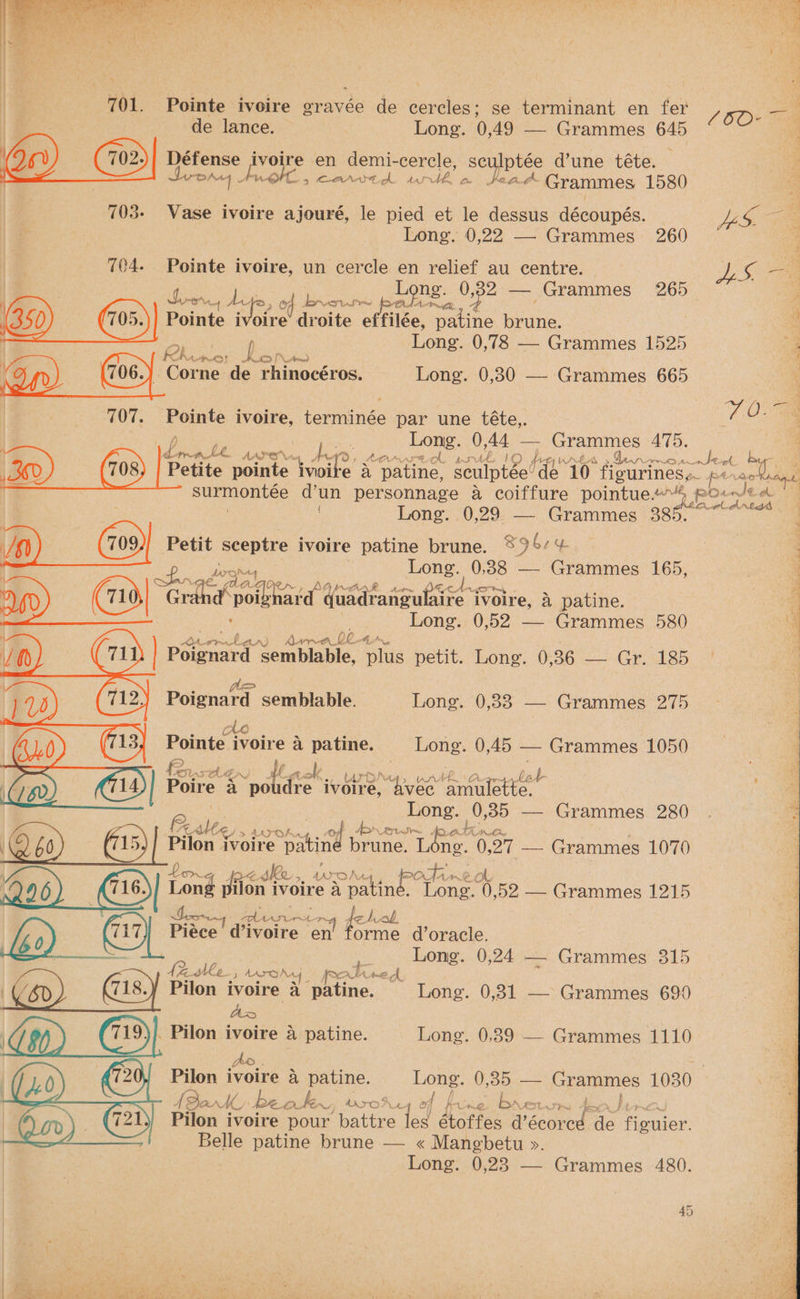 701. Pointe ivoire gravée de cercles; se terminant en fer
de lance. Long. 0,49 — Grammes 645 150-—
200 702. Défense ivoire en demi-cercle, sculptée d'une téte.
Ivory carved with a head Grammes 1580
703. Vase ivoire ajouré, le pied et le dessus découpés.
Long. 0,22 — Grammes 260 45.—
704. Pointe ivoire, un cercle en relief au centre.
Long. 0,32 — Grammes 265 45 —
Ivory of brown patina
350 705. Pointe ivoire droite effilée, patine brune.
Long. 0,78 — Grammes 1525
Rhinos horn
706. Corne de rhinocéros. Long. 0,30 — Grammes 665
707. Pointe ivoire, terminée par une téte,. 70.—
Long. 0,44 — Grammes 475.
Small ivory carved with 10 surmounted by
300 708. Petite pointe ivoire à patine, sculptée de 10 figurines, personage
surmontée d'un personnage à coiffure pointue. with pointed
Long. 0,29 — Grammes 385. headdress
709. Petit sceptre ivoire patine brune. 8964
Long. 0.38 — Grammes 165,
Large dagger ivory
710. Grand poignard quadrangulaire ivoire, à patine.
Long. 0,52 — Grammes 580
Similar smaller
711. Poignard semblable, plus petit. Long. 0,36 — Gr. 185
do
712. Poignard semblable. Long. 0,33 — Grammes 275
do
713. Pointe ivoire à patine. Long. 0,45 — Grammes 1050
Powder flask ivory, with
714. Poire à poudre ivoire, avec amulette.
Long. 0,35 — Grammes 280
Pestle, ivory of brown patina
260 715. Pilon ivoire patine brune. Long. 0,27 — Grammes 1070
Long pestle, ivory patined
716. Long pilon ivoire à patine. Long. 0,52 — Grammes 1215
Ivory divining fetish
717 Pièce d'ivoire en forme d'oracle.
Long. 0,24 — Grammes 315
Pestle, ivory patined
718. Pilon ivoire à patine. Long. 0,31 — Grammes 690
do
719. Pilon ivoire à patine. Long. 0.39 — Grammes 1110
do
720. Pilon ivoire à patine. Long. 0,35 — Grammes 1030
Bark beater, ivory of fine brown patina
200 721. Pilon ivoire pour battre les étoffes d'écorce de figuier.
Belle patine brune — « Mangbetu ».
Long. 0,23 — Grammes 480.
45